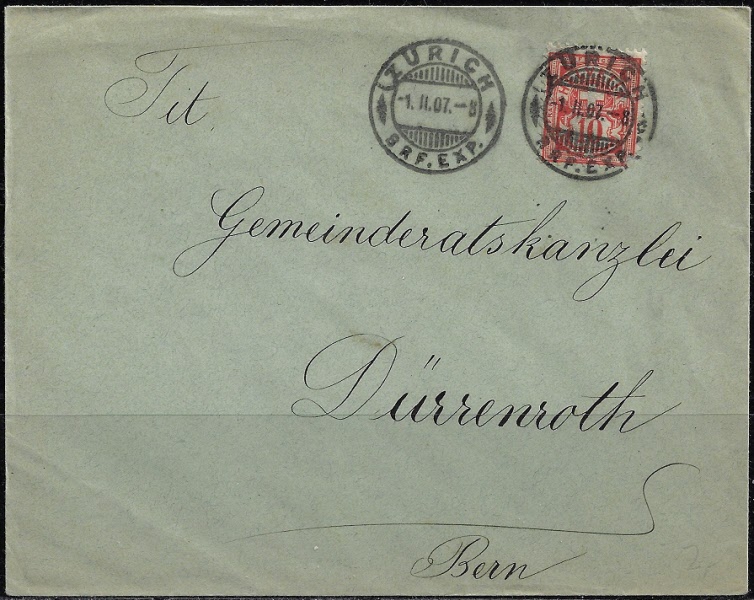 ZÜRICH
-1. II. 07. -8
BRF. EXP.
ZÜRICH
-1. II. 07. -8
BRF. EXP.
10
Tit.
Gemeinderatskanzlei
Dürrenroth
Bern